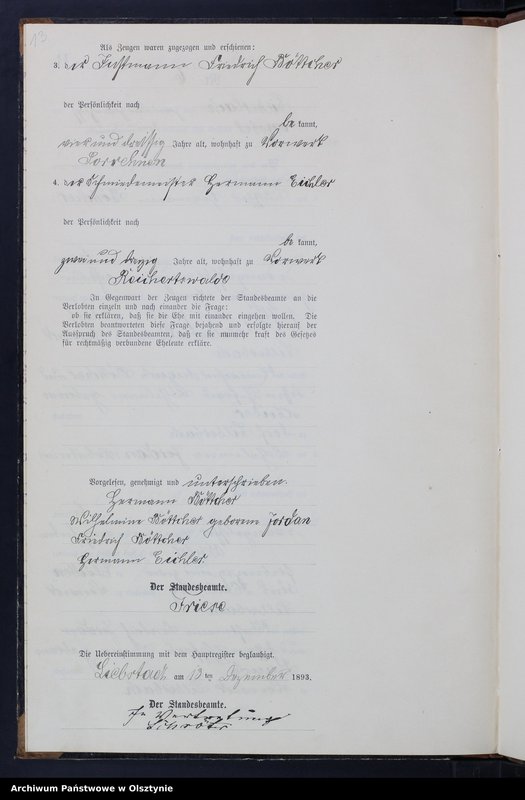 13
Als Zeugen waren zugezogen und erschienen:
3. der Instmann Friedrich Böttcher
der Persönlichkeit nach
be kannt,
vier und dreißig Jahre alt, wohnhaft zu Vorwerk
Sorrehnen
4. der Schmiedemeister Hermann Eichler
der Persönlichkeit nach
be kannt,
zwei und Jahre alt, wohnhaft zu Vorwerk
Reichertswalde
In Gegenwart der Zeugen richtete der Standesbeamte an die
Verlobten einzeln und nach einander die Frage:
ob sie erklären, daß sie die Ehe mit einander eingehen wollen. Die
Verlobten beantworteten diese Frage bejahend und erfolgte hierauf der
Ausspruch des Standesbeamten, daß er sie nunmehr kraft des Gesetzes
für rechtmäßig verbundene Eheleute erkläre.
Vorgelesen, genehmigt und unterschrieben.
Hermann Böttcher
Wilhelmine Böttcher geborene Jordan
Friedrich Böttcher
Hermann Eichler
Der Standesbeamte.
Friese
Die Uebereinstimmung mit dem Hauptregister beglaubigt.
Liebstadt, am 13 ten Dezember 1893.
Der Standesbeamte.
In Vertretung
Schröter
Archiwum Państwowe w Olsztynie